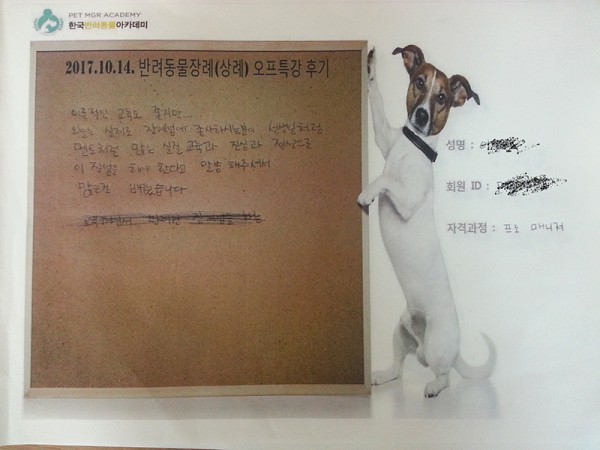 PET MGR ACADEMY
한국반려동물아카데미
2017.10.14. 반려동물장례(상례) 오프특강 후기
이론적인 교육도 좋지만...
오늘은 실제로 장례업에 종사하시는분이 선생님처럼
멘토처럼 많은 실전 교육과 진심과 정성으로
이 직업을 해야 한다고 말씀 해주셔서
많은걸 배웠습니다
성명 :
회원 ID :
자격과정 : 프로 매니저